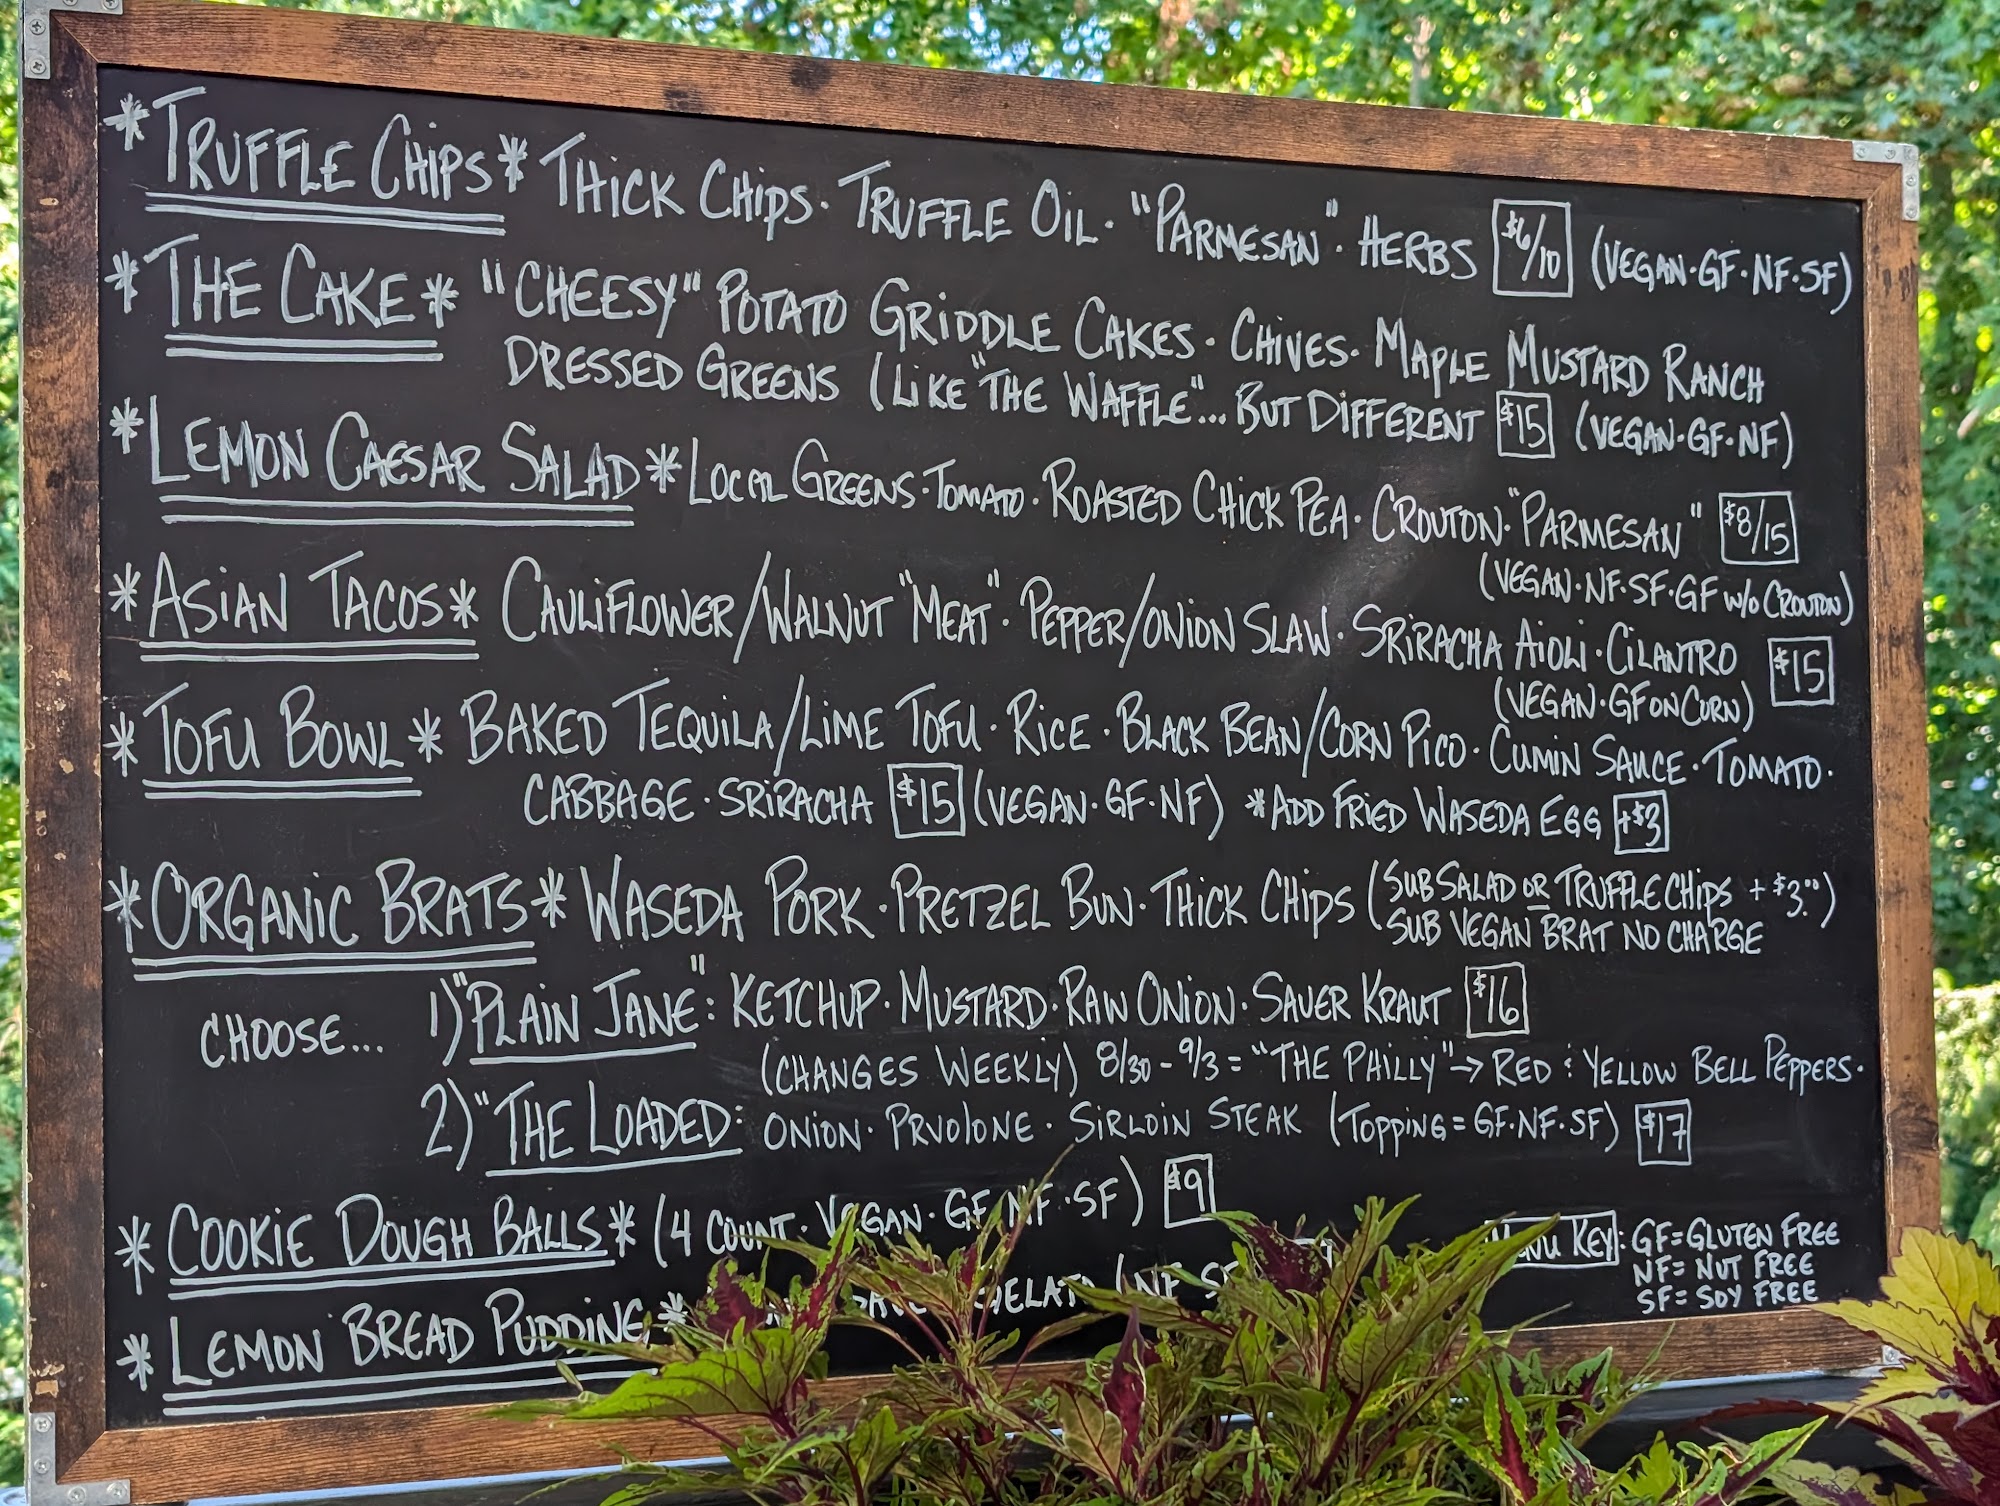 *TRUFFLE CHIPS* THICK CHIPS · TRUFFLE OIL · "PARMESAN" · HERBS $6/10 (VEGAN·GF·NF·SF)
*THE CAKE* "CHEESY" POTATO GRIDDLE CAKES · CHIVES · MAPLE MUSTARD RANCH
DRESSED GREENS (LIKE "THE WAFFLE"... BUT DIFFERENT $15 (VEGAN·GF·NF)
*LEMON CAESAR SALAD* LOCAL GREENS · TOMATO · ROASTED CHICK PEA · CROUTON · "PARMESAN" $8/15
(VEGAN·NF·SF·GF W/O CROUTON)
*ASIAN TACOS* CAULIFLOWER/WALNUT "MEAT" · PEPPER/ONION SLAW · SRIRACHA AIOLI · CILANTRO $15
(VEGAN·GF ON CORN)
*TOFU BOWL* BAKED TEQUILA/LIME TOFU · RICE · BLACK BEAN/CORN PICO · CUMIN SAUCE · TOMATO ·
CABBAGE · SRIRACHA $15 (VEGAN·GF·NF) *ADD FRIED WASEDA EGG +$3
*ORGANIC BRATS* WASEDA PORK · PRETZEL BUN · THICK CHIPS (SUB SALAD OR TRUFFLE CHIPS + $3.00)
SUB VEGAN BRAT NO CHARGE
CHOOSE... 1) "PLAIN JANE": KETCHUP · MUSTARD · RAW ONION · SAUER KRAUT $16
(CHANGES WEEKLY) 8/30 - 9/3 = "THE PHILLY" → RED & YELLOW BELL PEPPERS ·
2) "THE LOADED: ONION · PRVOLONE · SIRLOIN STEAK (TOPPING = GF·NF·SF) $17
*COOKIE DOUGH BALLS* (4 COUNT · VEGAN · GF · NF · SF) $9
*LEMON BREAD PUDDING* GELATO (NF SF
MENU KEY: GF = GLUTEN FREE
NF = NUT FREE
SF = SOY FREE